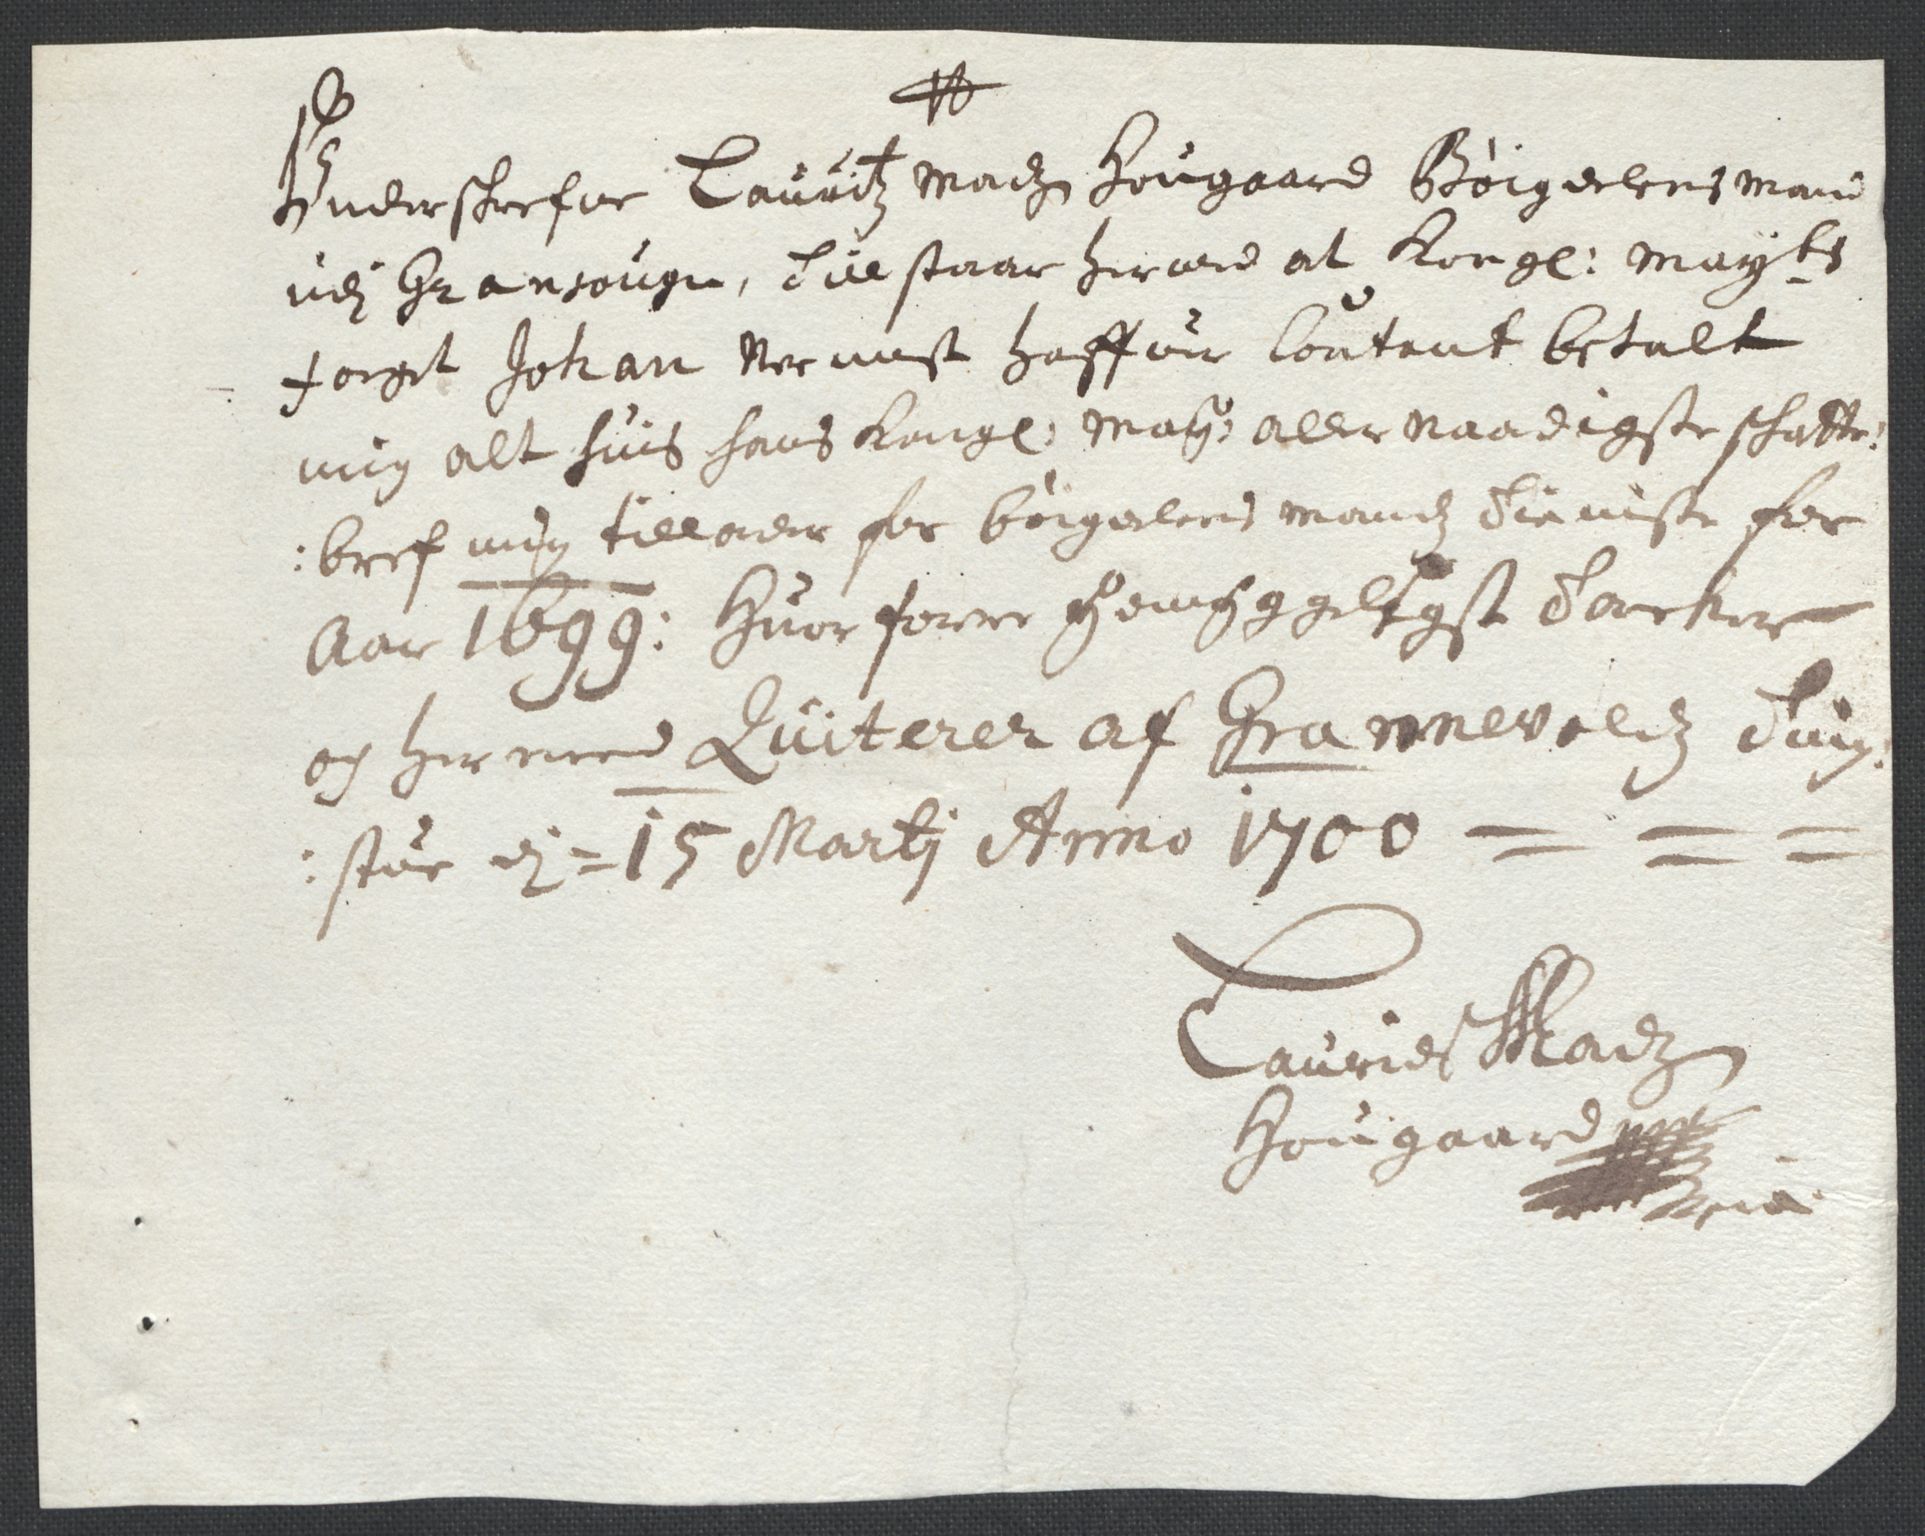 Underskrefne Lauritz Madz: Hougaard Böigdelensmand
udj Gransougn, Tilstaar hermed at Kongl: Mayts
fogit Johan Vernust haffuer Contant betalt
mig alt huis hans Kongl: May: aller naadigste schatte:
:bref mig tillader for böigdelensmandz Tieniste for
Aar 1699: Huor forre ggeligst Tacker
og hermed Quiterer af Grannevoldz Ting:
:stue dj = 15 Martj Anno 1700 = = =
Laurids Madz
Hougaard